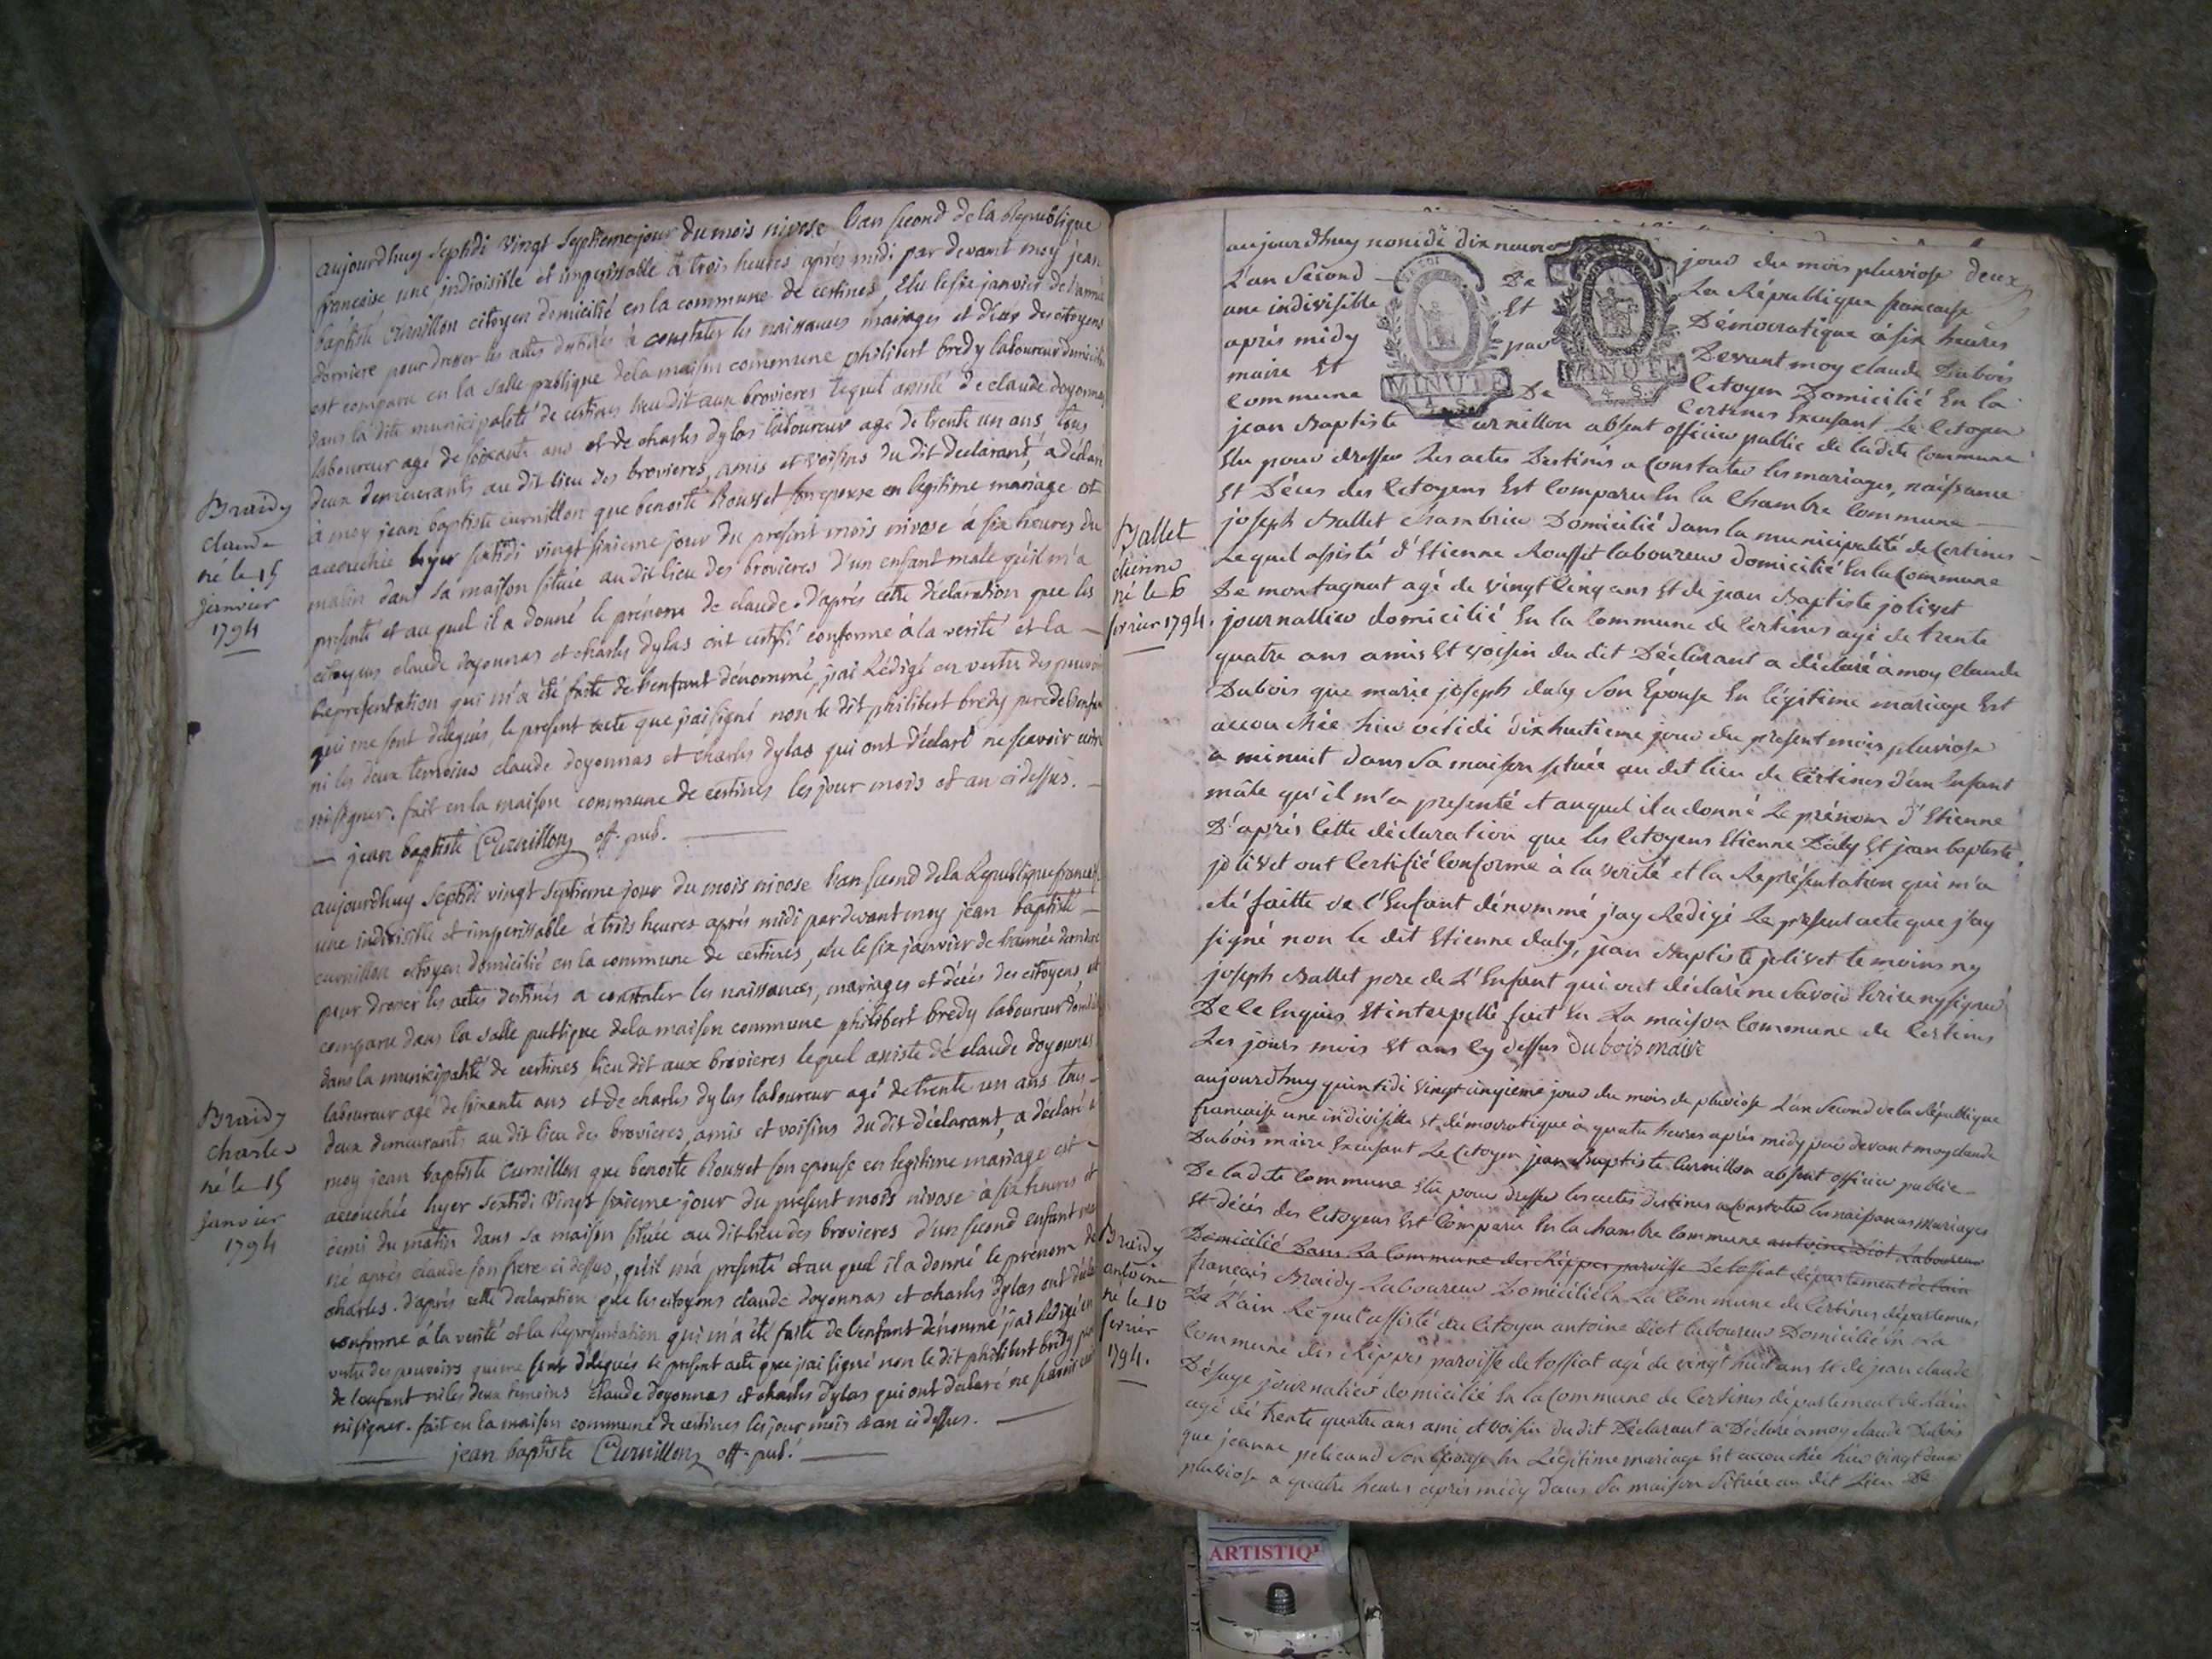 aujourdhuy septidi vingt septieme jour du mois nivose l'an second de la Republique
francaise une indivisible et imperissable à trois heures après midi par devant moy jean
baptiste Curnillon citoyen domicilié en la commune de certines, Elu le six janvier de l'année
derniere pour dresser les actes destinés à constater les naissances mariages et décés des citoyens
est comparu en la salle publique de la maison commune philibert bredy laboureur domicilié
dans la dite municipalité de certines lieu dit aux brovieres lequel assisté de claude doyonnas
laboureur agé de soixante ans et de charles dylas laboureur agé de trente un ans tous
deux demeurants au dit lieu des brovieres, amis et voisins du dit declarant, a déclaré
à moy jean baptiste curnillon que benoite Rousset son epouse en legitime mariage est
accouchée hyer sextidi vingt sixieme jour du present mois nivose à six heures du
matin dans sa maison située au dit lieu des brovieres d'un enfant male qu'il m'a
presenté et au quel il a donné le prénom de claude. d'après cette déclaration que les
citoyens claude doyonnas et charles dylas ont certifié conforme à la verité et la
Representation qui m'a été faite de l'enfant dénommé, j'ai Rédigé en vertu des pouvoirs
qui me sont délegués, le present acte que j'ai signé non le dit philibert bredy pere de l'enfant
ni les deux temoins claude doyonnas et charles dylas qui ont déclaré ne scavoir ecrire
ni signer. fait en la maison commune de certines les jour mois et an ci dessus.
jean baptiste Curnillon off. pub.
Braidy
claude
né le 15
janvier
1794
aujourdhuy septidi vingt septieme jour du mois nivose l'an second de la Republique francaise
une indivisible et imperissable à trois heures après midi par devant moy jean baptiste
curnillon citoyen domicilié en la commune de certines, élu le six janvier de l'année derniere
pour dresser les actes destinés a constater les naissances, mariages et décés des citoyens est
comparu dans la salle publique de la maison commune philibert bredy laboureur domicilié
dans la municipalité de certines lieu dit aux brovieres lequel assisté de claude doyonnas
laboureur agé de soixante ans et de charles dylas laboureur agé de trente un ans tous
deux demeurants au dit lieu des brovieres, amis et voisins du dit déclarant, a declaré à
moy jean baptiste Curnillon que benoite Rousset son epouse en legitime mariage est
accouchée hyer sextidi vingt sixieme jour du present mois nivose à six heures et
demi du matin dans sa maison située au dit lieu des brovieres d'un second enfant male
né après claude son frere ci dessus, qu'il m'a presenté et au quel il a donné le prénom de
charles. d'après cette declaration que les citoyens claude doyonnas et charles dylas ont déclaré
conforme à la verité et la Representation qui m'a été faite de l'enfant dénommé j'ai Redigé en
vertu des pouvoirs qui me sont délegués le present acte que j'ai signé non le dit philibert bredy pere
de l'enfant ni les deux temoins Claude doyonnas et charles dylas qui ont declaré ne scavoir ecrire
ni signer. fait en la maison commune de certines les jour mois et an ci dessus.
jean baptiste Curnillon off. pub.
Braidy
charles
né le 15
janvier
1794
aujourdhuy nonidi dix neuvieme jour du mois pluviose deux
L'an Second De La République francaise
une indivisible Et Démocratique à six heures
après midy par Devant moy claude Dubois
maire Et Citoyen Domicilié En la
Commune De Certines Excusant Le Citoyen
MINUTE
4. S.
MINUTE
4. S.
jean Baptiste Curnillon absent officier public de ladite Commune
Elu pour dresser Les actes Destinés a Constater les mariages, naissance
Et Décés des Citoyens Est Comparu En la Chambre Commune
joseph Ballet chambrier Domicilié dans la municipalité de Certines
Lequel assisté d'Etienne Rousset laboureur domicilié En la Commune
De montagnat agé de vingt Cinq ans Et de jean Baptiste jolivet
journallier domicilié En la Commune de Certines agé de trente
quatre ans amis Et voisin du dit Déclarant a déclaré à moy Claude
Dubois que marie joseph daly Son Epouse En légitime mariage Est
accouchée hier octidi dix huitieme jour du present mois pluviose
a minuit dans Sa maison située au dit lieu de Certines d'un Enfant
mâle qu'il m'a presenté et auquel il a donné Le prénom d'Etienne
D'après Cette déclaration que les Citoyens Etienne Daly Et jean baptiste
jolivet ont Certifié Conforme à la verité et la Représentation qui m'a
été faitte de l'Enfant dénommé j'ay Redigé Le present acte que j'ay
signé non le dit Etienne daly, jean Baptiste jolivet temoins ny
joseph Ballet pere de L'Enfant qui ont déclaré ne Savoir Ecrire ny signer
De Ce Enquis Et interpellé fait En La maison Commune de Certines
Les jours mois Et ans Cy dessus Dubois maire
Ballet
etienne
né le 6
fevrier 1794.
aujourdhuy quintidi vingt cinqieme jour du mois de pluviose L'an Second de la République
francaise une indivisible Et démocratique à quatre heures après midy par devant moy claude
Dubois maire Excusant Le Citoyen jean Baptiste Curnillon absent officier public
De la dite Commune Elu pour dresser les actes destines a Constater les naissances mariages
Et décés des Citoyens Est Comparu En la chambre Commune antoine Diot Laboureur
Domicilié Dans La Commune des Rippes paroisse De tossiat département de lain
francois Braidy Laboureur Domicilié En La Commune de Certines département
De L'ain Lequel assisté du Citoyen antoine diot laboureur Domicilié En La
Commune des Rippes paroisse de tossiat agé de vingt huit ans Et de jean claude
Désuge journalier domicilié En la Commune de Certines département de L'ain
agé de trente quatre ans ami et voisin du dit Déclarant a Déclaré a moy claude Dubois
que jeanne pelicand Son Epouse En Légitime mariage Est accouchée hier vingt deux
pluviose a quatre heures après midy dans Sa maison Située au dit Lieu De
Braidy
antoine
né le 10
fevrier
1794.
ARTISTIQ